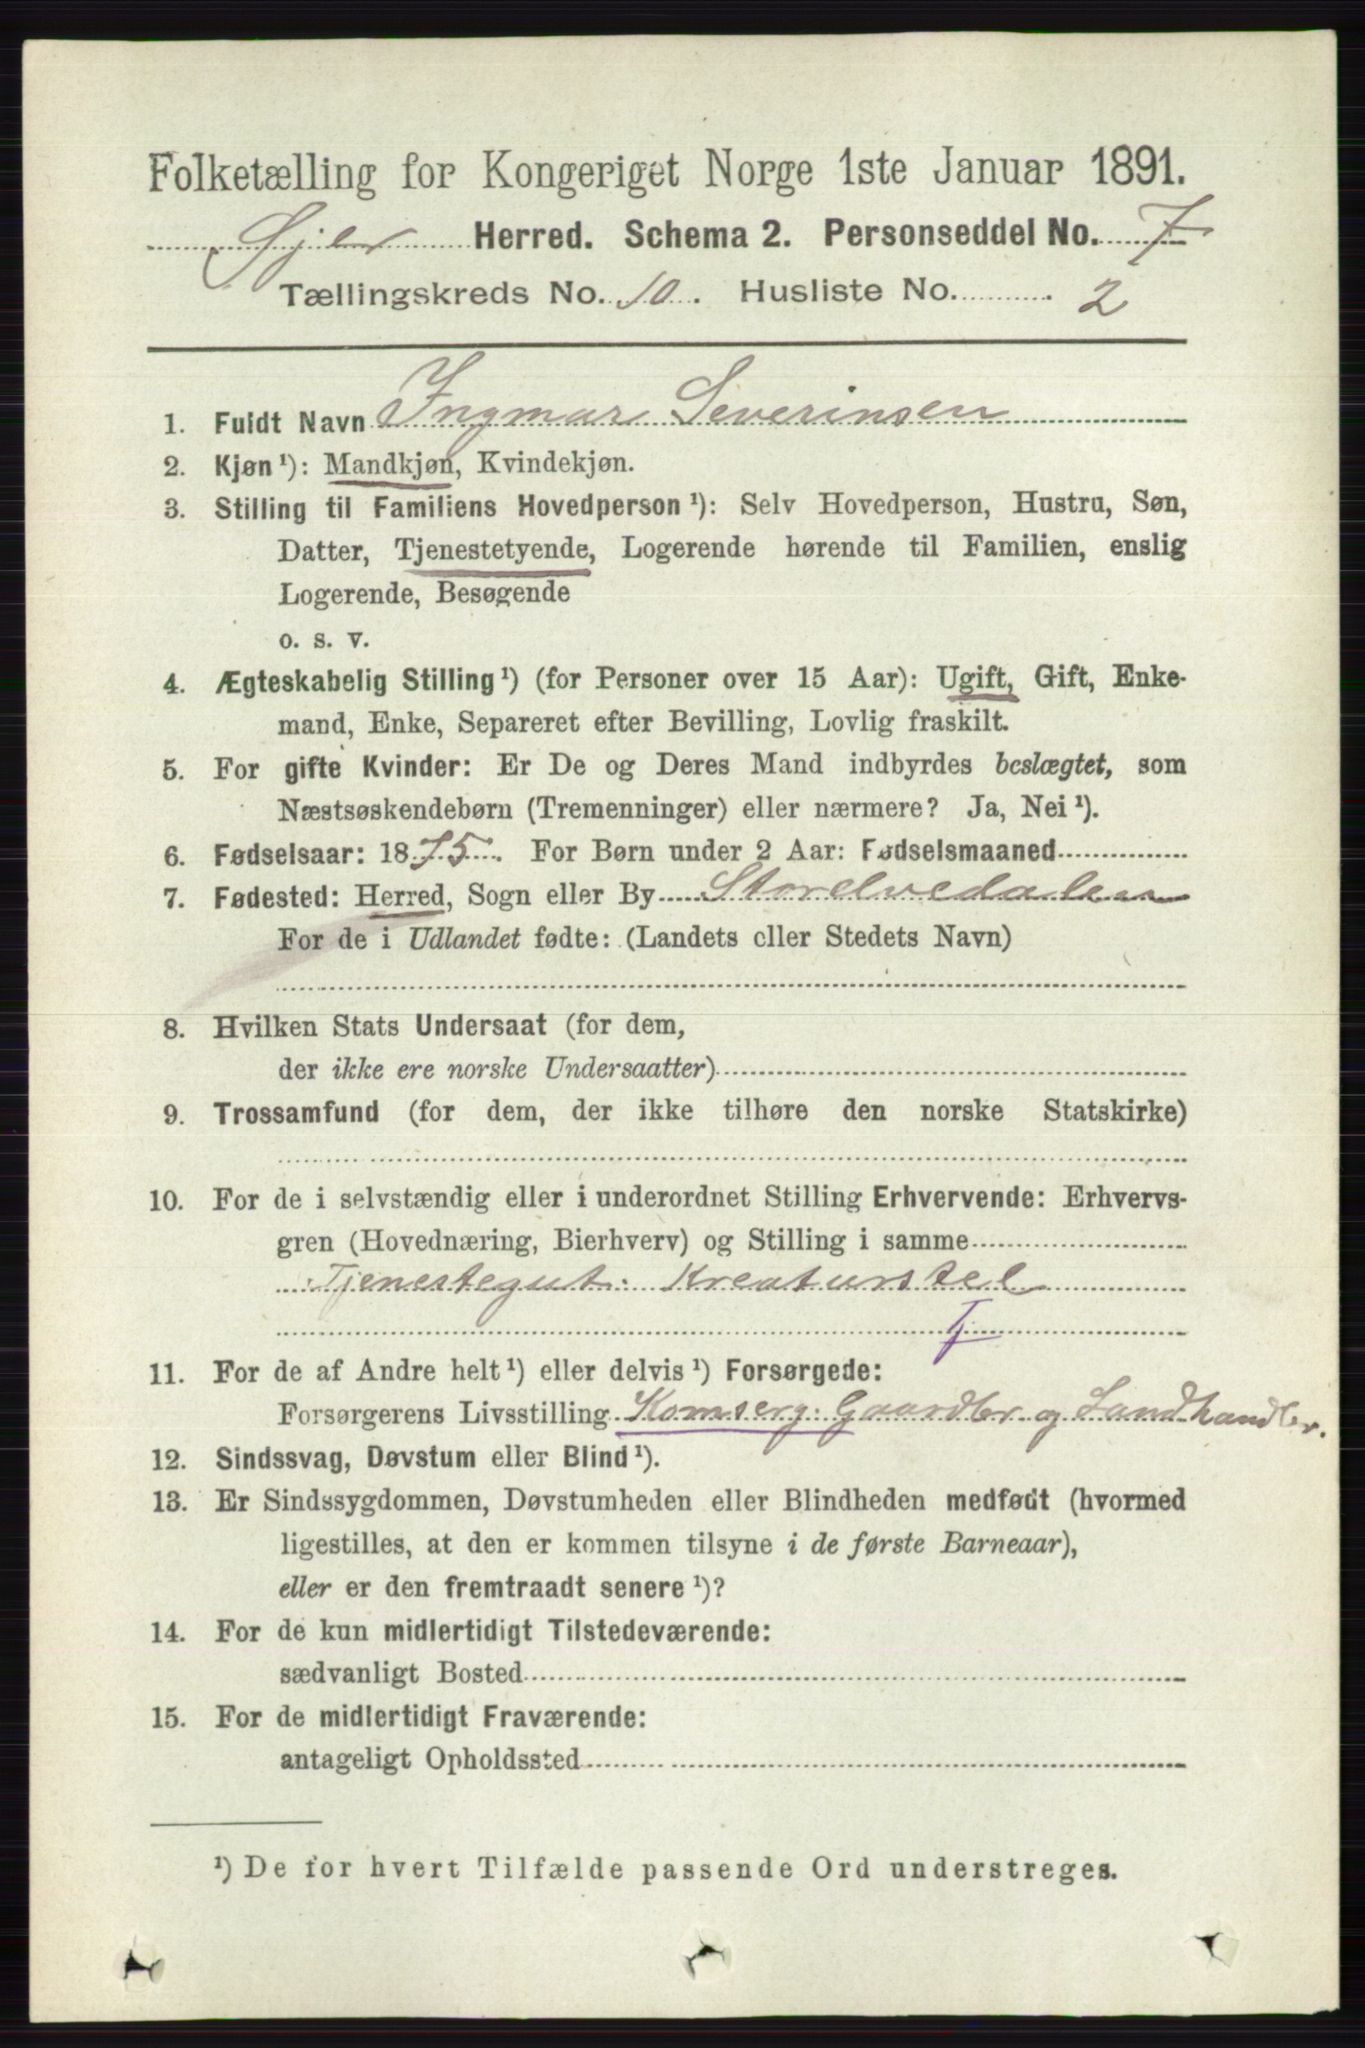 Folketælling for Kongeriget Norge 1ste Januar 1891.
Herred. Schema 2. Personseddel No. 7
Tællingskreds No. 10. Husliste No. 2
1. Fuldt Navn Ingmar Severinsen
2. Kjøn ¹): Mandkjøn, Kvindekjøn.
3. Stilling til Familiens Hovedperson ¹): Selv Hovedperson, Hustru, Søn,
Datter, Tjenestetyende, Logerende hørende til Familien, enslig
Logerende, Besøgende
o. s. v.
4. Ægteskabelig Stilling ¹) (for Personer over 15 Aar): Ugift, Gift, Enke-
mand, Enke, Separeret efter Bevilling, Lovlig fraskilt.
5. For gifte Kvinder: Er De og Deres Mand indbyrdes beslægtet, som
Næstsøskendebørn (Tremenninger) eller nærmere? Ja, Nei ¹).
6. Fødselsaar: 1875. For Børn under 2 Aar: Fødselsmaaned
7. Fødested: Herred, Sogn eller By Storelvedalen
For de i Udlandet fødte: (Landets eller Stedets Navn)
8. Hvilken Stats Undersaat (for dem,
der ikke ere norske Undersaatter)
9. Trossamfund (for dem, der ikke tilhøre den norske Statskirke)
10. For de i selvstændig eller i underordnet Stilling Erhvervende: Erhvervs-
gren (Hovednæring, Bierhverv) og Stilling i samme
Tjenestegut: Kreaturstel
Tj
11. For de af Andre helt ¹) eller delvis ¹) Forsørgede:
Forsørgerens Livsstilling Gaardbr og Landhandler.
12. Sindssvag, Døvstum eller Blind ¹).
13. Er Sindssygdommen, Døvstumheden eller Blindheden medfødt (hvormed
ligestilles, at den er kommen tilsyne i de første Barneaar),
eller er den fremtraadt senere ¹)?
14. For de kun midlertidigt Tilstedeværende:
sædvanligt Bosted
15. For de midlertidigt Fraværende:
antageligt Opholdssted
¹) De for hvert Tilfælde passende Ord understreges.